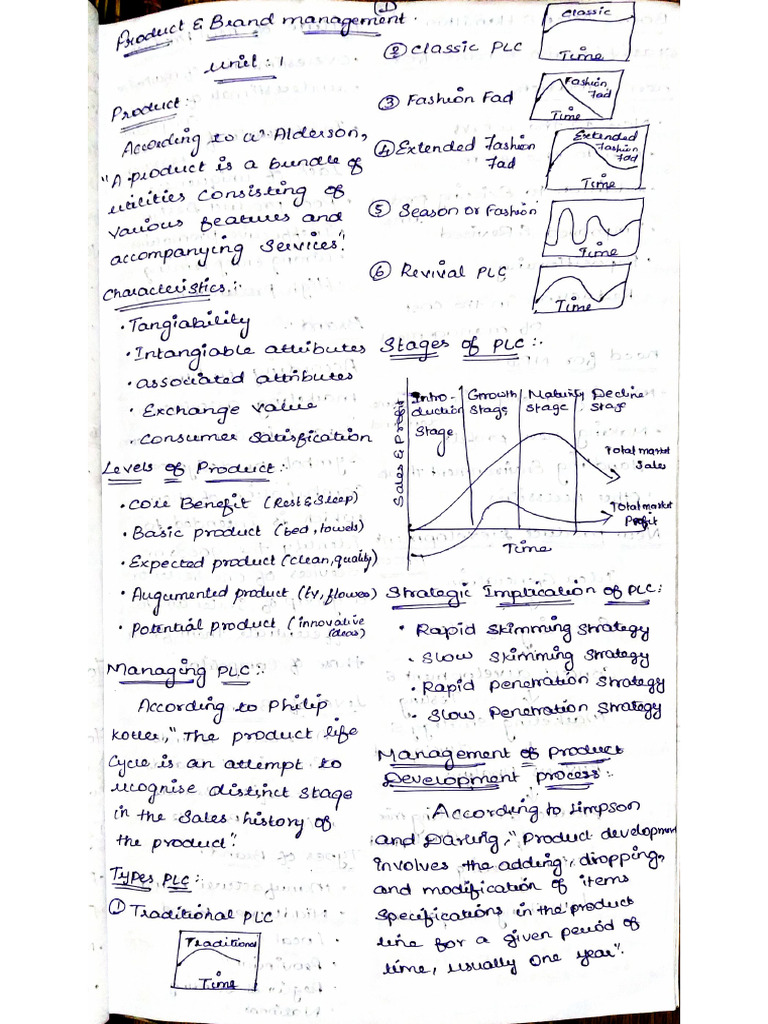 ①
Product & Brand management.
Unit : 1
Product:
According to W Alderson,
"A product is a bundle of
utilities consisting of
various features and
accompanying services".
Characteristics:-
• Tangiability
• Intangiable attributes
• associated attributes
• Exchange value
• Consumer Satisfication
Levels of Product:-
• Core Benefit (Rest & Sleep)
• Basic product (bed, towels)
• Expected product (clean, quality)
• Augumented product (tv, flower)
• Potential product (innovative
ideas)
Managing PLC:-
According to Philip
Kotler, "The product life
Cycle is an attempt to
recognise distinct stage
in the sales history of
the product".
Types PLC:-
① Traditional PLC
Traditional
Time
② Classic PLC
Classic
Time
③ Fashion Fad
Fashion
Fad
Time
④ Extended Fashion
Fad
Extended
Fashion
Fad
Time
⑤ Season or Fashion
Time
⑥ Revival PLC
Time
Stages of PLC:-
Sales & Profit
Intro-
duction
Stage
Growth
Stage
Maturity
stage
Decline
Stage
Total market
Sales
Total market
Profit
Time
Strategic Implication of PLC:
• Rapid Skimming Strategy
• Slow Skimming Strategy
• Rapid Penetration Strategy
• Slow Penetration Strategy
Management of Product
Development process:-
According to Limpson
and Darling, "Product development
involves the adding, dropping,
and modification of items
Specifications in the product
line for a given period of
time, usually one year".